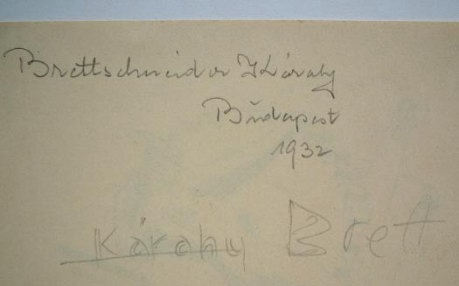 Brettschneider Károly
Budapest
1932
Károly Brett